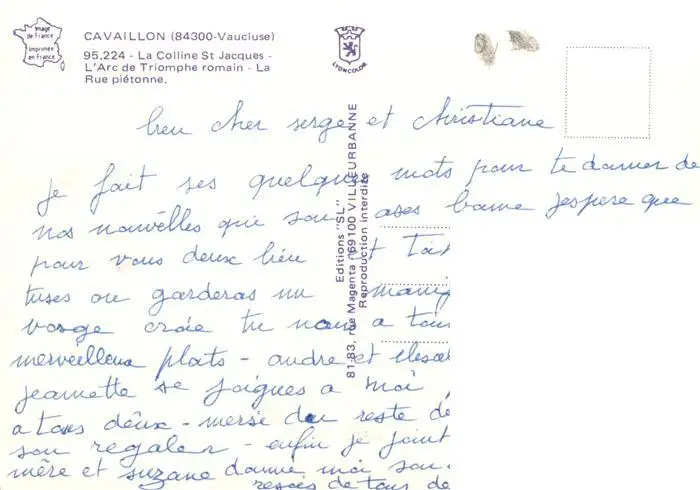 Image de France
Imprimée en France
CAVAILLON (84300-Vaucluse)
95.224 - La Colline St Jacques -
L'Arc de Triomphe romain - La
Rue piétonne.
LYONCOLOR
Editions "SL"
81-83, rue Magenta (69100 VILLEURBANNE
Reproduction interdite
bien cher serge et christiane
Je fait ses quelques mots pour te donner de
nos nouvelles qui son ases bonne j'espere que
pour vous deux bien et
ou garderas un
vosge croie tu nous a
merveilleux plats - andre et
jeannette se joignes a moi
a tous deux - merse du reste de
son regaler - enfin je joint
mère et suzane donne moi son
resois de tous de